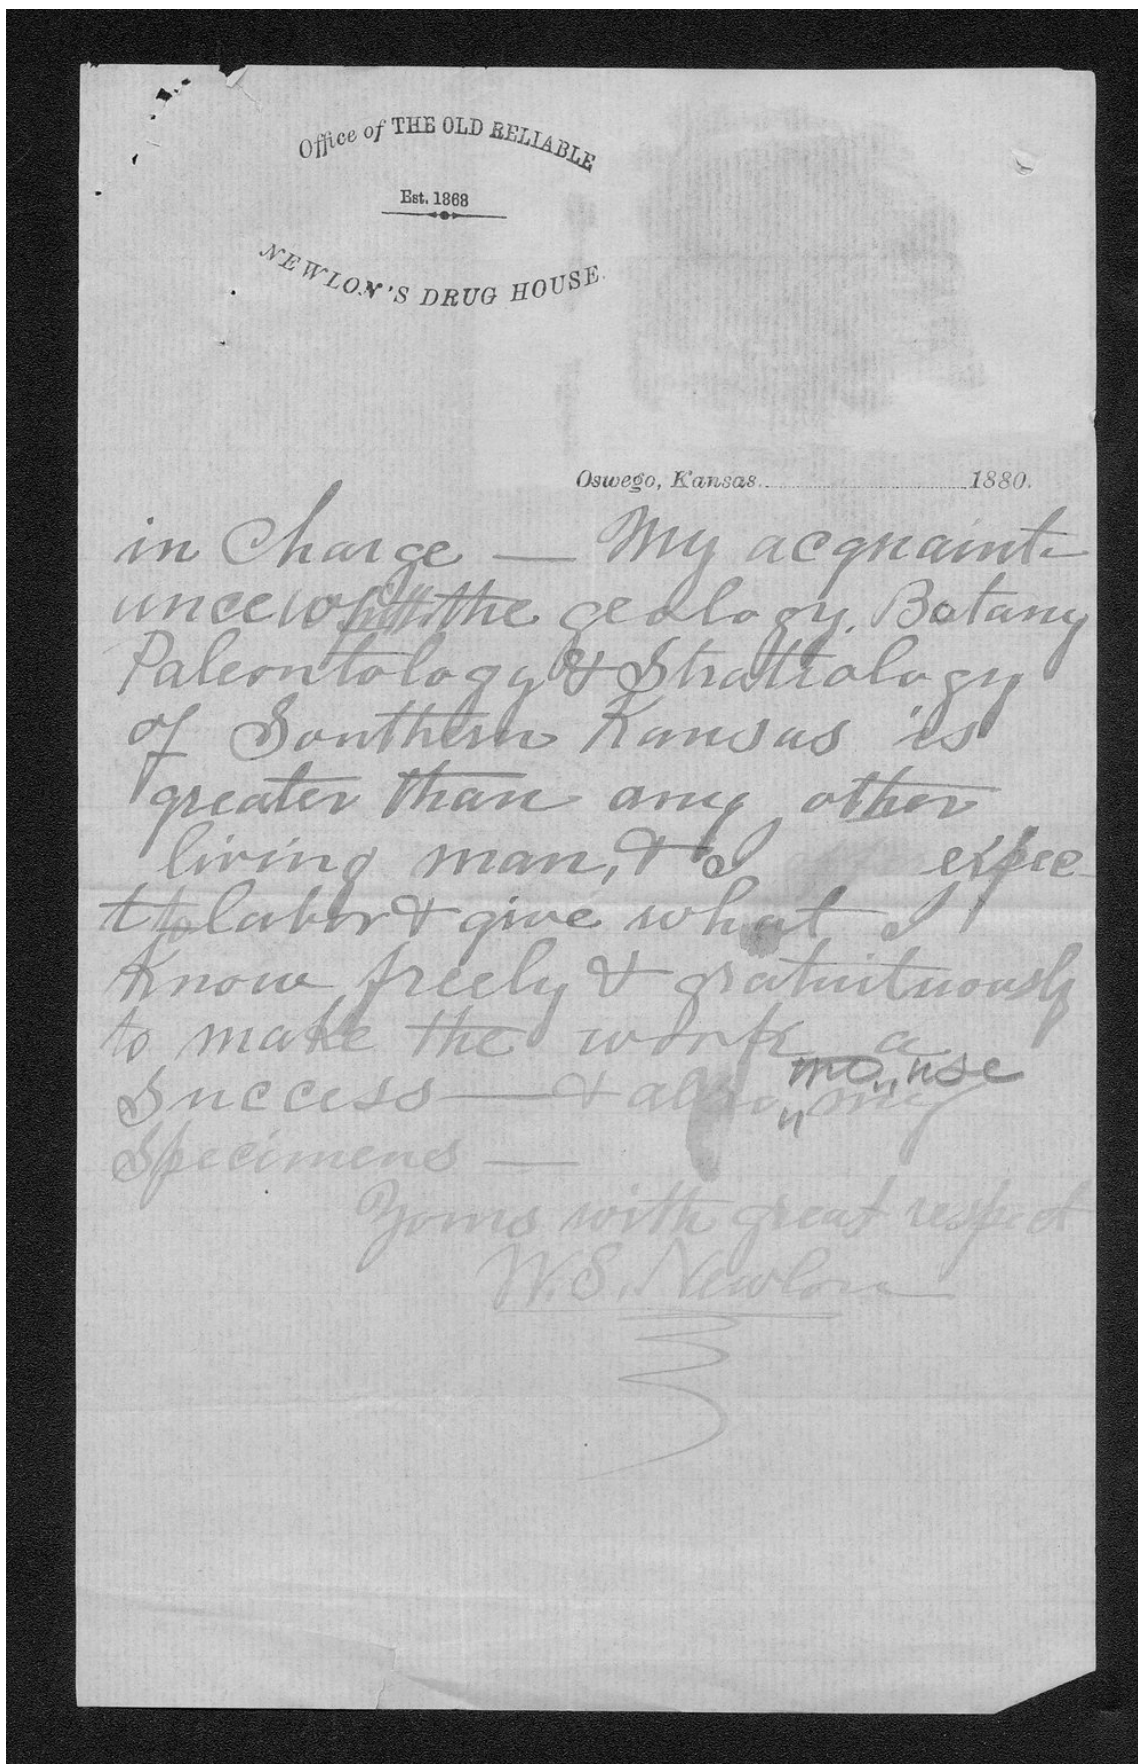 Office of THE OLD RELIABLE
Est. 1868
NEWLON'S DRUG HOUSE.
Oswego, Kansas. 1880.
in Charge — My acquaint-
ance with the geology, Botany
Paleontology & Stratiology
of Southern Kansas is
greater than any other
living man, & I expec
t to labor & give what I
know freely & gratuituously
to make the work a
success — & also " my
specimens —
Yours with great respect
W. S. Newlon